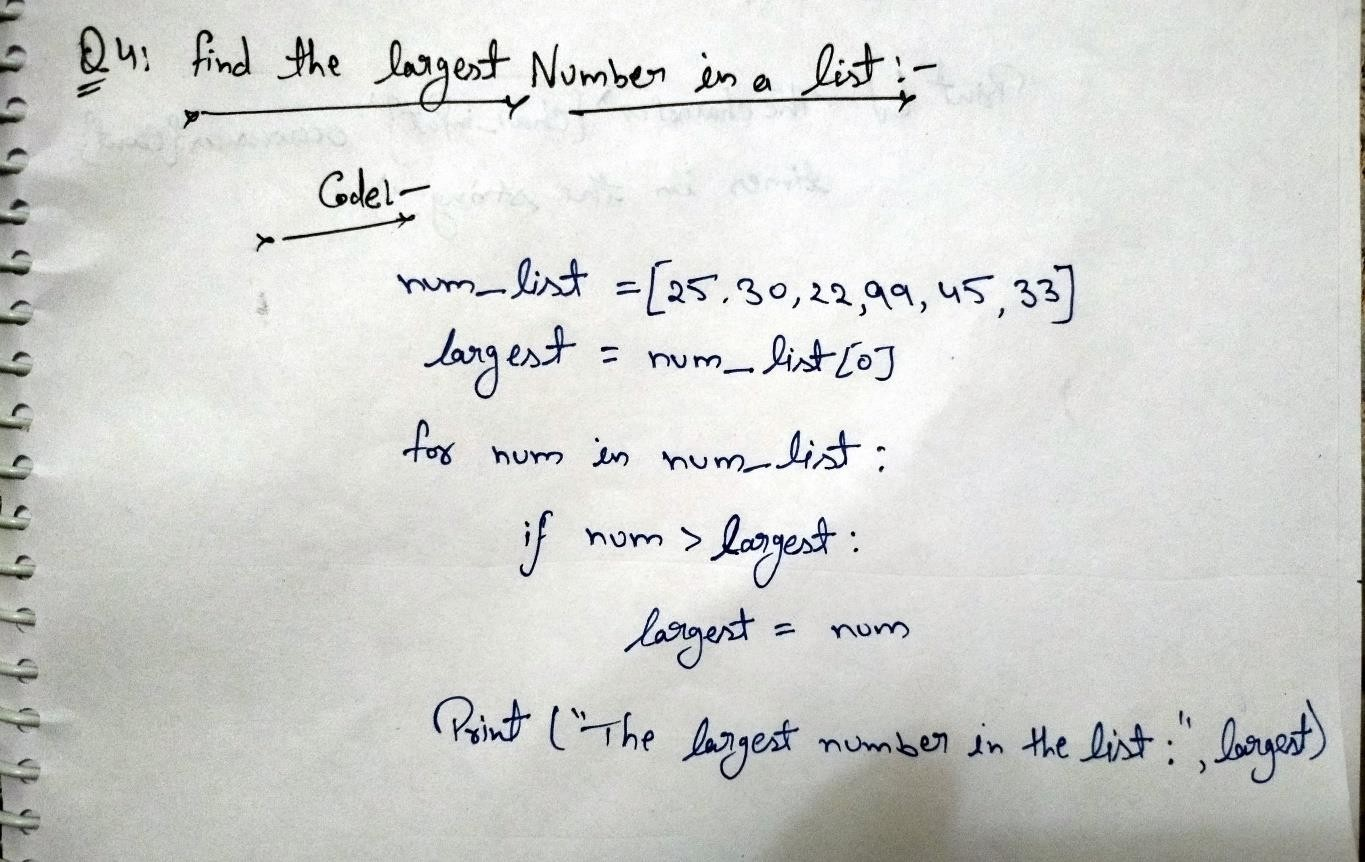 Q4: find the largest Number in a list :-
Code:-
num_list = [25.30,22,99,45,33]
largest = num_list[0]
for num in num_list :
if num > largest :
largest = num
Print ("The largest number in the list :", largest)